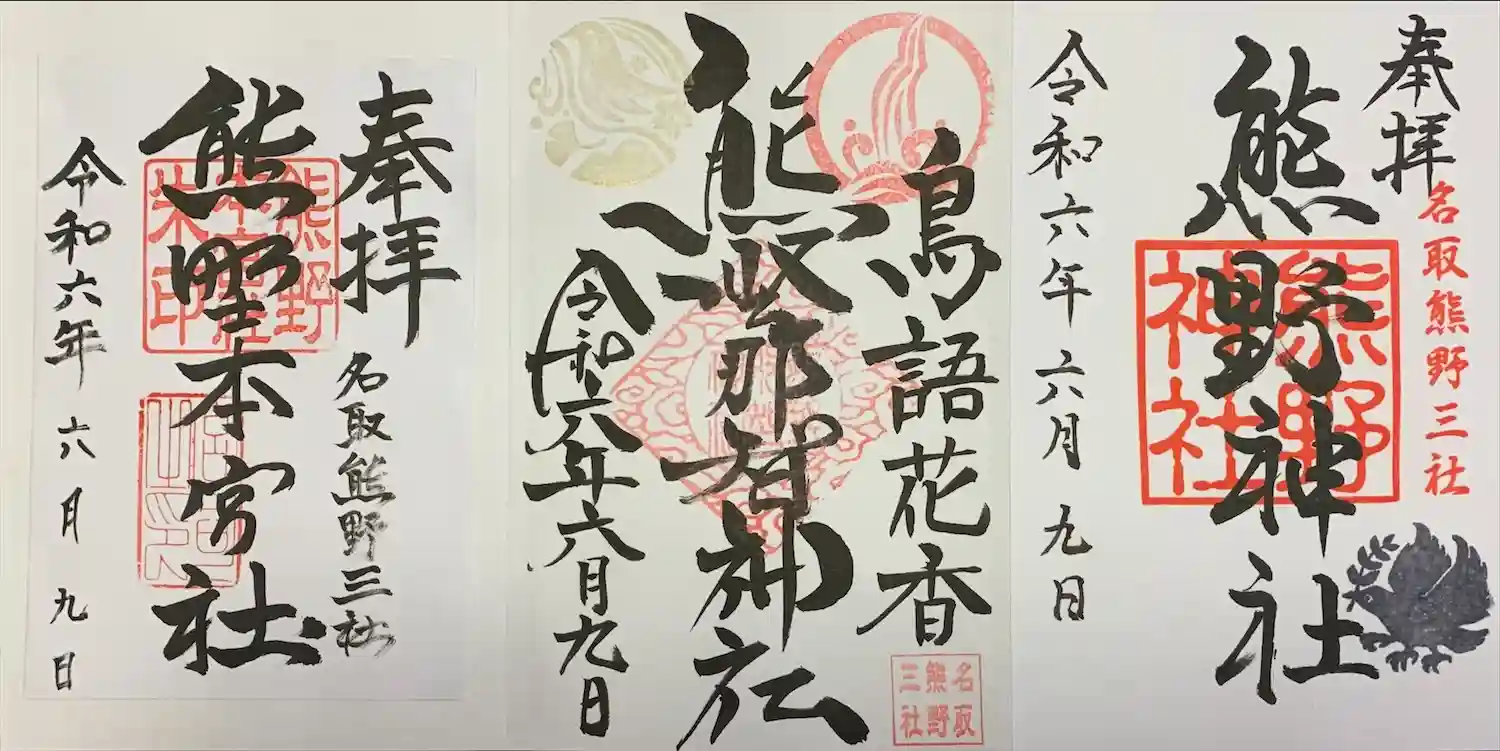 奉拝
名取熊野三社
熊野神社
熊野神社
令和六年六月九日
鳥語花香
名取熊野三社
熊野那智神社
令和六年六月九日
奉拝
名取熊野三社
熊野本宮社
熊野本宮社朱印
令和六年六月九日